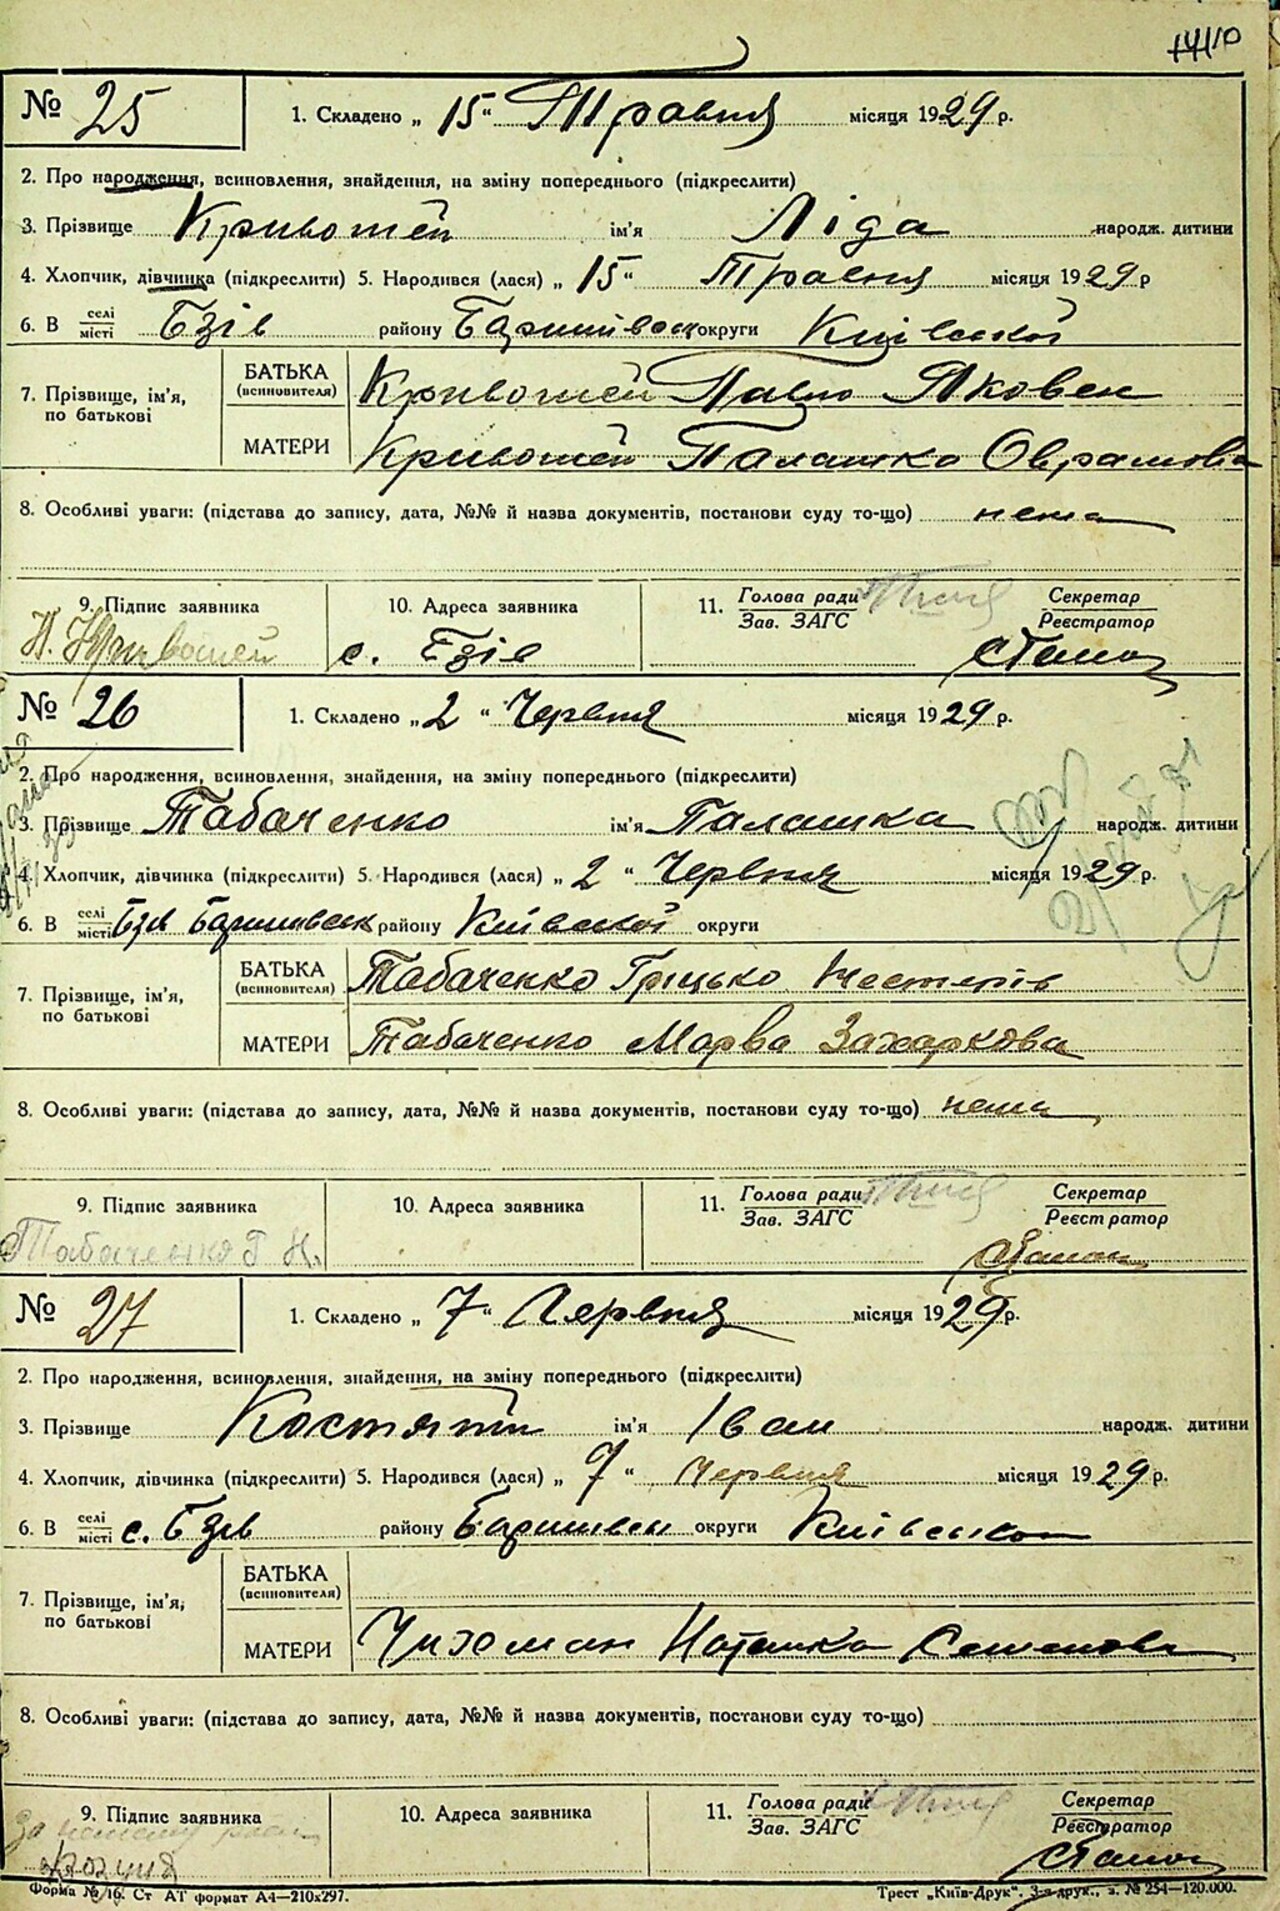 № 25 1. Складено „ 15 “ Травня місяця 1929 р.
2. Про народження, всиновлення, знайдення, на зміну попереднього (підкреслити)
3. Прізвище Кривошей ім'я Ліда народж. дитини
4. Хлопчик, дівчинка (підкреслити) 5. Народився (лася) „ 15 “ Травня місяця 1929 р
6. В селі Бзів району Баришівськ округи Київської
місті
БАТЬКА
(всиновителя) Кривошей Павло Яковен
7. Прізвище, ім'я,
по батькові
МАТЕРИ Кривошей Палашка Оврамова
8. Особливі уваги: (підстава до запису, дата, №№ й назва документів, постанови суду то-що) нема
9. Підпис заявника 10. Адреса заявника 11. Голова ради Секретар
Зав. ЗАГС Реєстратор
Кривошей с. Бзів
№ 26 1. Складено „ 2 “ Червня місяця 1929 р.
2. Про народження, всиновлення, знайдення, на зміну попереднього (підкреслити)
3. Прізвище Табаченко ім'я Палашка народж. дитини
4. Хлопчик, дівчинка (підкреслити) 5. Народився (лася) „ 2 “ Червня місяця 1929 р.
6. В селі Бзів Баришівськ району Київської округи
місті
БАТЬКА
(всиновителя) Табаченко Грицько Нестерів
7. Прізвище, ім'я,
по батькові
МАТЕРИ Табаченко Марва Захаркова
8. Особливі уваги: (підстава до запису, дата, №№ й назва документів, постанови суду то-що) нема
9. Підпис заявника 10. Адреса заявника 11. Голова ради Секретар
Зав. ЗАГС Реєстратор
Табаченко Г Н.
№ 27 1. Складено „ 7 “ Червня місяця 1929 р.
2. Про народження, всиновлення, знайдення, на зміну попереднього (підкреслити)
3. Прізвище ім'я Іван народж. дитини
4. Хлопчик, дівчинка (підкреслити) 5. Народився (лася) „ 7 “ Червня місяця 1929 р.
6. В селі с. Бзів району Баришівськ округи Київсько
місті
БАТЬКА
(всиновителя)
7. Прізвище, ім'я,
по батькові
МАТЕРИ Чихман Наташка Семенова
8. Особливі уваги: (підстава до запису, дата, №№ й назва документів, постанови суду то-що)
9. Підпис заявника 10. Адреса заявника 11. Голова ради Секретар
Зав. ЗАГС Реєстратор
Форма № 16. Ст АТ формат А4—210х297. Трест „Київ-Друк“. 3-я друк., з. № 254—120.000.